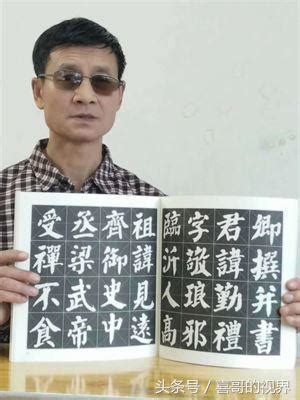 卿撰并書
君諱勤禮
字敬琅邪
臨沂人高
祖諱見遠
齊御史中
丞梁武帝
受禪不食
头条号 / 喜哥的视界